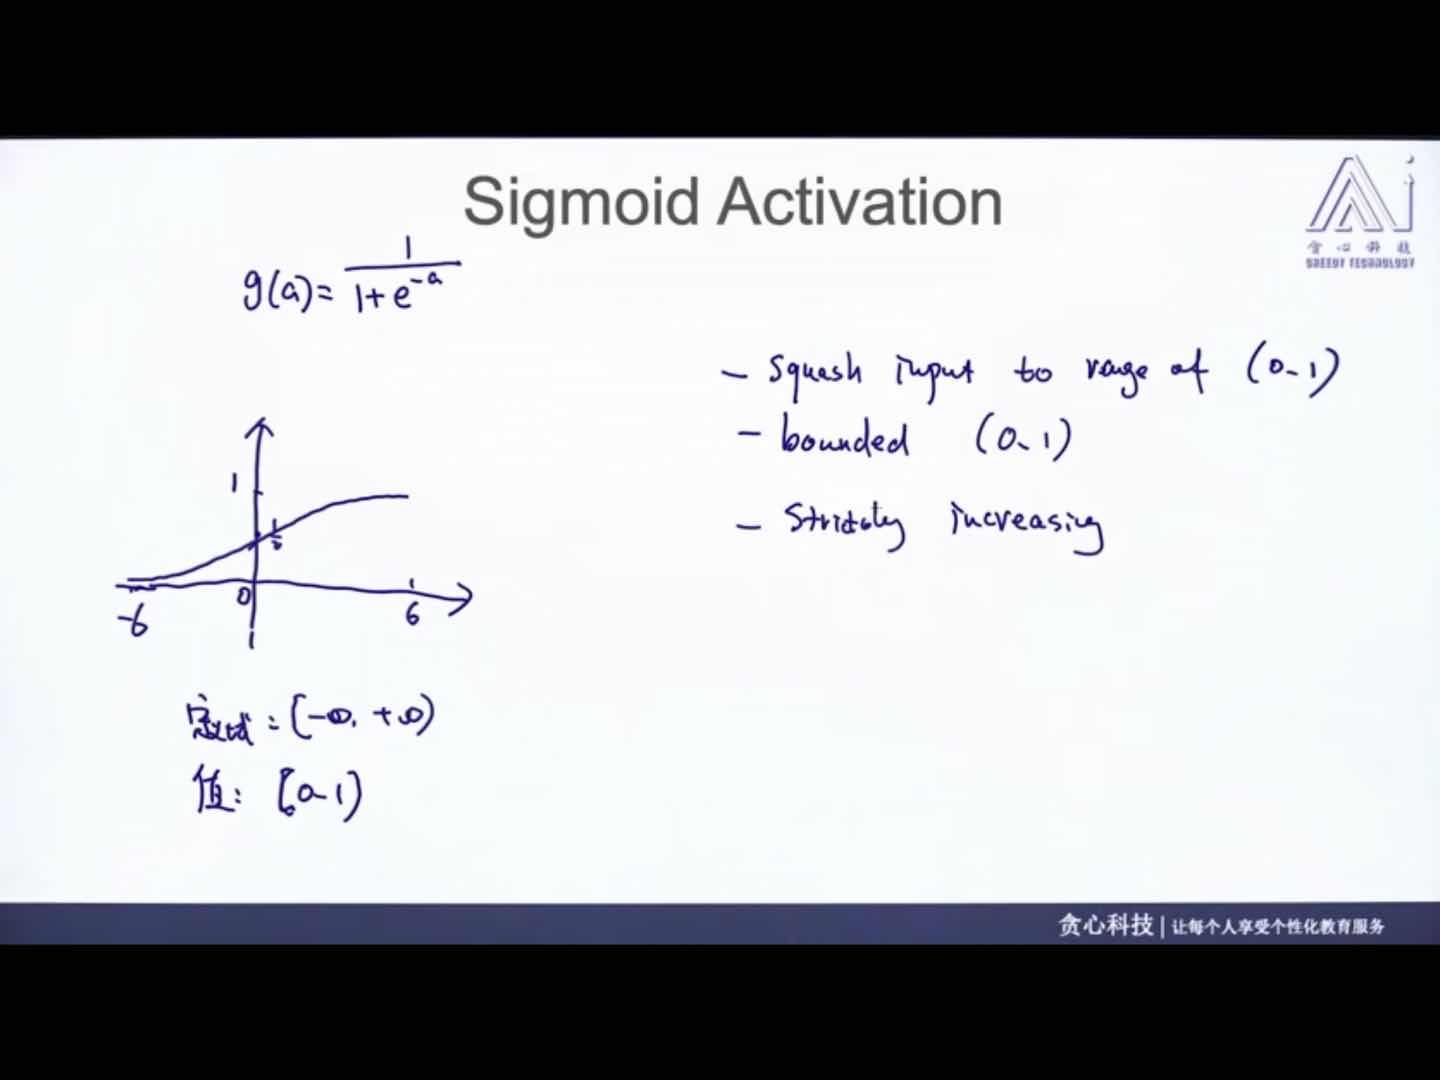 Sigmoid Activation
贪心科技
GREEDY TECHNOLOGY
g(a)= 1/(1+e^-a)
- Squash input to range of (0-1)
- bounded (0-1)
- Strictly increasing
1
1/2
0
-6
6
定义域:(-∞, +∞)
值:(0-1)
贪心科技 | 让每个人享受个性化教育服务